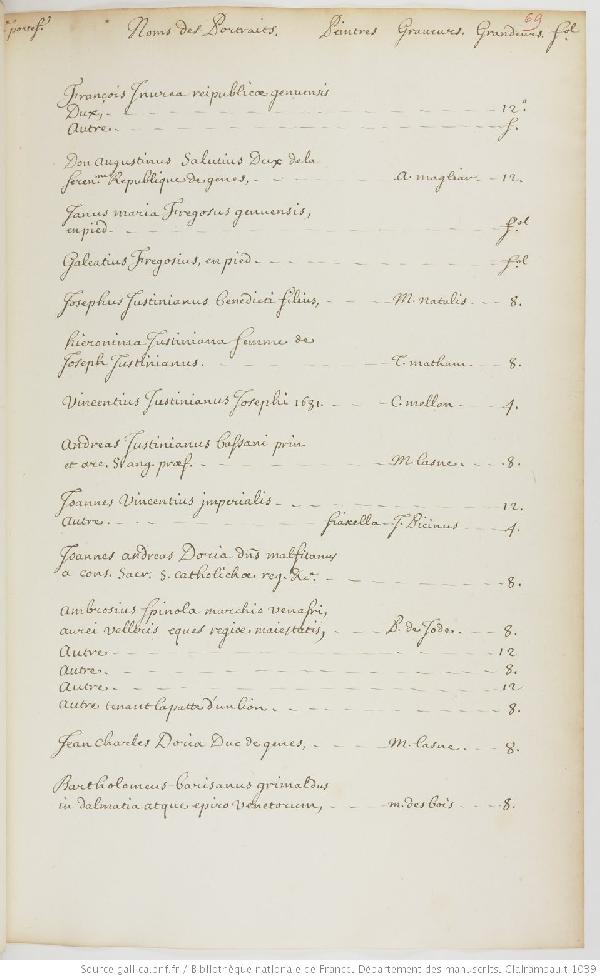 69
portef. Noms des Portraits. Peintres Graueurs. Grandeurs. fol
François Inurea reipublicæ genuensis
Dux, 12.
Autre. f.
Don Augustinus Salutius Dux de la
Seren.me Republique de genes, A. magliar 12.
Janus maria Fregosus genuensis,
en pied. fol
Galeatius Fregosius, en pied. fol
Josephus Justinianus benedicti filius, M. natalis 8.
hieronima Justiniana femme de
Joseph Justinianus. T. matham 8.
Vincentius Justinianus Josephi 1631. C. mellan 4.
Andreas Justinianus bassani prin
et arc. S. ang. præf. M. lasne. 8.
Joannes Vincentius imperialis 12.
Autre. fiasella J. Picinus 4.
Joannes andreas Doria dñs malfitanus
a cons. Sacr. S. catholichæ reg. &c. 8.
Ambrosius Spinola marchio venafri,
aurei velleris eques regiæ maiestatis, P. de Jode. 8.
Autre 12
Autre. 8.
Autre. 12
Autre tenant la patte d'un lion. 8.
Jean Charles Doria Duc de genes, M. lasne. 8.
Bartholomeus barisanus grimaldus
in dalmatia atque epiro Venetorum, m. des bois 8.
Source gallica.bnf.fr / Bibliothèque nationale de France. Département des manuscrits. Clairambault 1039